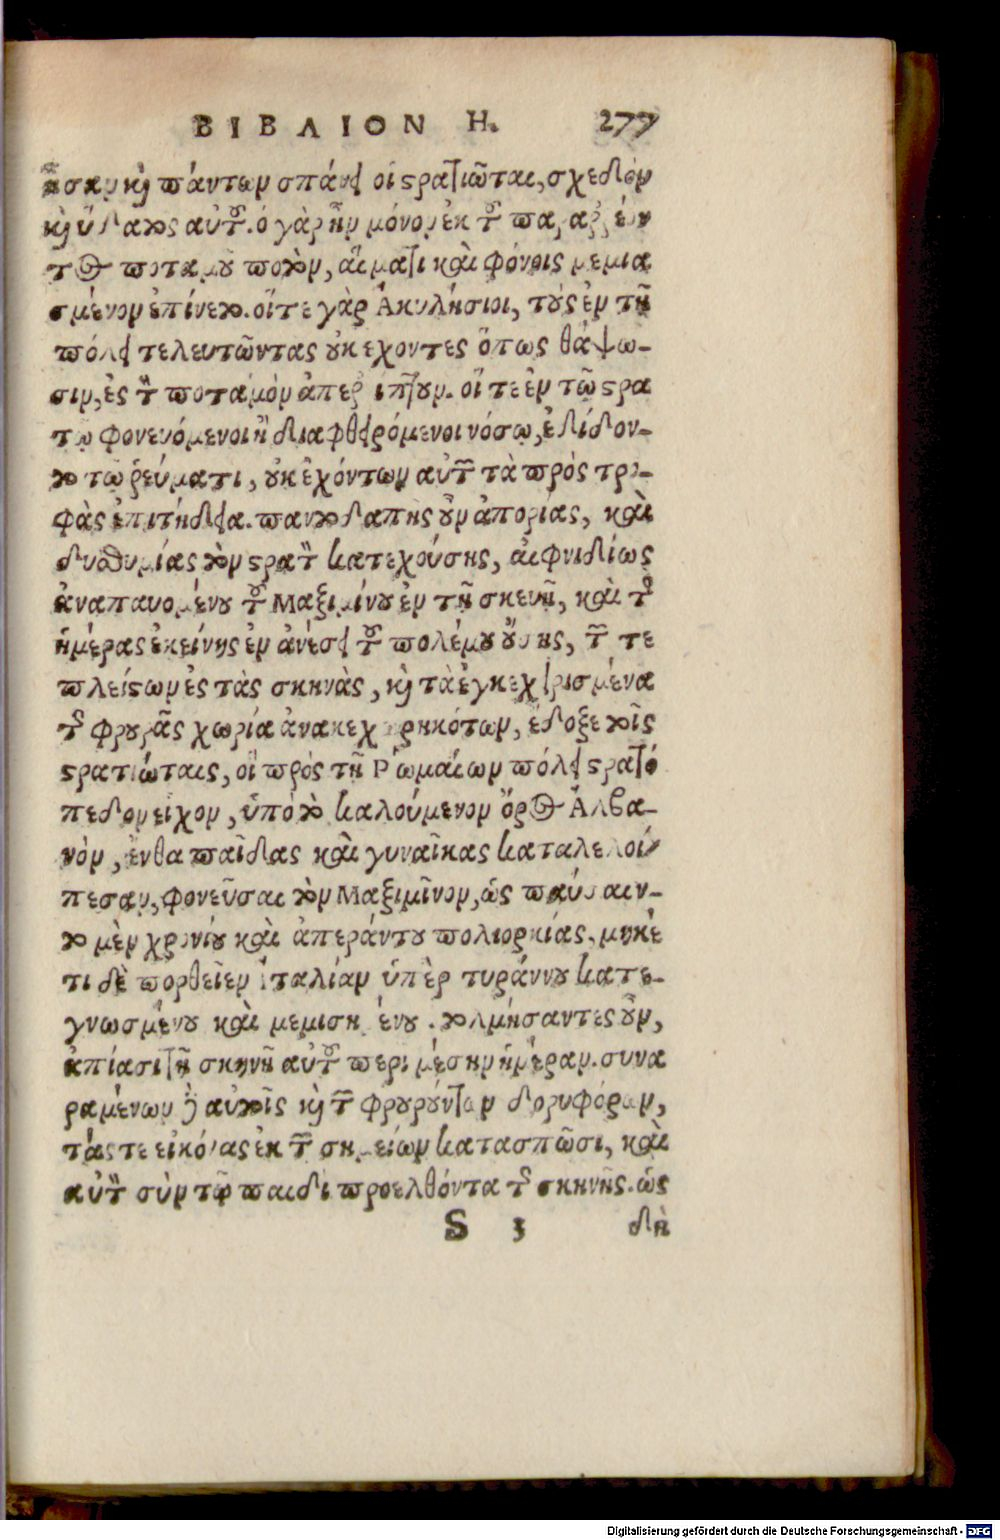 ΒΙΒΛΙΟΝ Η. 277
ἦσαν καὶ πάντων σπάνει οἱ στρατιῶται, σχεδὸν
καὶ ὕδατος αὐτοῦ. ὁ γὰρ ἦν μόνον ἐκ τοῦ παραρρέον
τος ποταμοῦ ποτὸν, αἵματι καὶ φόνοις μεμια
σμένον ἐπίνετο. οἵ τε γὰρ Ἀκυλήσιοι, τοὺς ἐν τῇ
πόλει τελευτῶντας οὐκ εχοντες ὅπως θάψω-
σιν, ἐς τὸν ποταμὸν ἀπερίπτουν. οἵ τε ἐν τῷ στρα
τῷ φονευόμενοι ἢ διαφθειρόμενοι νόσῳ, ἐδίδον-
το τῷ ῥεύματι, οὐκ ἐχόντων αὐτῶν τὰ πρὸς τρο-
φὰς ἐπιτήδεια. παντοδαπῆς οὖν ἀπορίας, καὶ
δυσθυμίας τὸν στρατὸν κατεχούσης, αἰφνιδίως
ἀναπαυομένου τοῦ Μαξιμίνου ἐν τῇ σκευῇ, καὶ τῆς
ἡμέρας ἐκείνης ἐν ἀνέσει τοῦ πολέμου οὔσης, τῶν τε
πλείστων ἐς τὰς σκηνὰς, καὶ τὰ ἐγκεχειρισμένα
τῆς φρουρᾶς χωρία ἀνακεχωρηκότων, ἔδοξε τοῖς
στρατιώταις, οἳ πρὸς τῇ Ῥωμαίων πόλει στρατό
πεδον εἶχον, ὑπὸ τὸ καλούμενον ὄρος Ἀλβα-
νὸν, ἔνθα παῖδας καὶ γυναῖκας καταλελοί
πεσαν, φονεῦσαι τὸν Μαξιμῖνον, ὡς παύσαιν-
το μὲν χρονίου καὶ ἀπεράντου πολιορκίας, μηκέ
τι δὲ πορθεῖεν Ἰταλίαν ὑπὲρ τυράννου κατε-
γνωσμένου καὶ μεμισημένου. τολμήσαντες οὖν,
ἐπίασι τῇ σκηνῇ αὐτοῦ περὶ μέσην ἡμέραν. συνα
ραμένων δὲ αὐτοῖς καὶ τῶν φρουρούντων δορυφόρων,
τάς τε εἰκόνας ἐκ τῶν σημείων κατασπῶσι, καὶ
αὐτὸν σὺν τῷ παιδὶ προελθόντα τῆς σκηνῆς. ὡς
S 3 δὴ
Digitalisierung gefördert durch die Deutsche Forschungsgemeinschaft - DFG